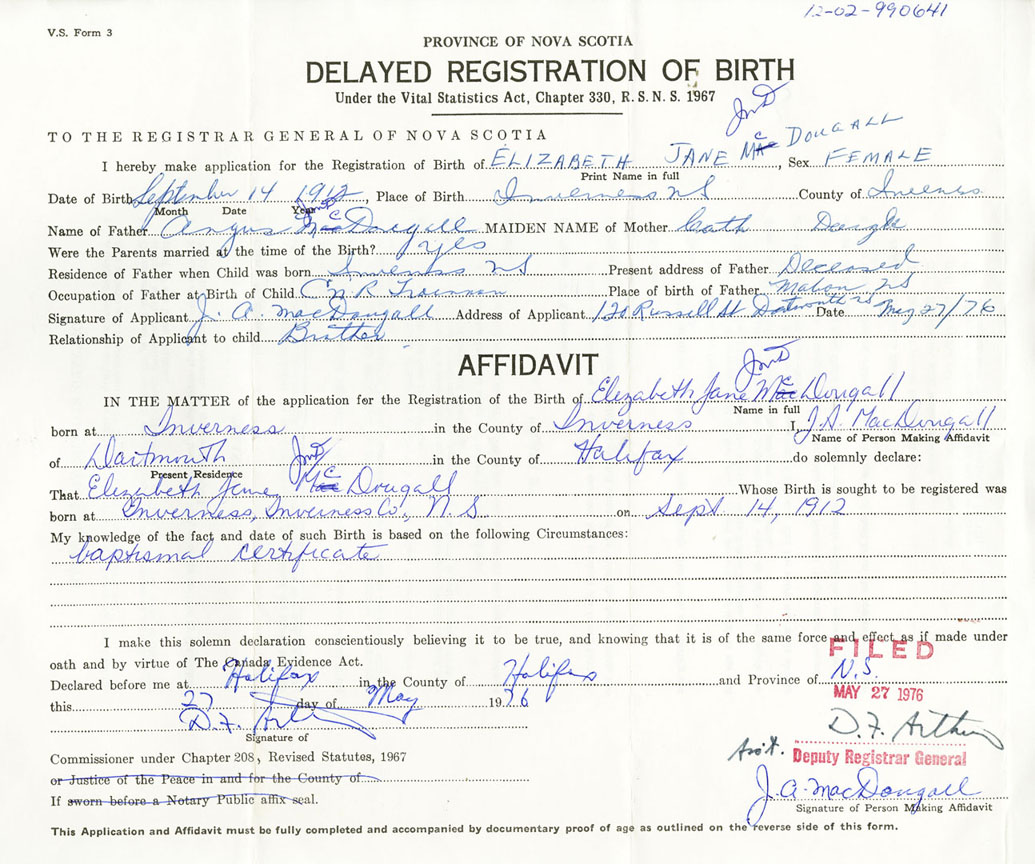 12-02-990641
V.S. Form 3
PROVINCE OF NOVA SCOTIA
DELAYED REGISTRATION OF BIRTH
Under the Vital Statistics Act, Chapter 330, R. S. N. S. 1967
TO THE REGISTRAR GENERAL OF NOVA SCOTIA
I hereby make application for the Registration of Birth of ELIZABETH JANE Mc DOUGALL, Sex FEMALE
Print Name in full
Date of Birth September 14 1912, Place of Birth Inverness NS County of Inverness
Month Date Year
Name of Father Angus Mc Dougall MAIDEN NAME of Mother Cath Daigle
Were the Parents married at the time of the Birth? Yes
Residence of Father when Child was born Inverness NS Present address of Father Deceased
Occupation of Father at Birth of Child CNR Trainman Place of birth of Father Mabou NS
Signature of Applicant J. A. MacDougall Address of Applicant 120 Russell St Dartmouth NS Date May 27/76
Relationship of Applicant to child Brother
AFFIDAVIT
IN THE MATTER of the application for the Registration of the Birth of Elizabeth Jane Mc Dougall
Name in full
born at Inverness in the County of Inverness I, J.A. MacDougall
Name of Person Making Affidavit
of Dartmouth in the County of Halifax do solemnly declare:
Present Residence
That Elizabeth Jane Mc Dougall Whose Birth is sought to be registered was
born at Inverness, Inverness Co., N.S. on Sept 14, 1912
My knowledge of the fact and date of such Birth is based on the following Circumstances:
baptismal certificate
I make this solemn declaration conscientiously believing it to be true, and knowing that it is of the same force and effect as if made under
oath and by virtue of The Canada Evidence Act.
FILED
Declared before me at Halifax in the County of Halifax and Province of N.S.
this 27 day of May 1976
MAY 27 1976
D.F. Arthur
Signature of
D.F. Arthur
Commissioner under Chapter 208, Revised Statutes, 1967
Asst. Deputy Registrar General
or Justice of the Peace in and for the County of
J.A. MacDougall
If sworn before a Notary Public affix seal.
Signature of Person Making Affidavit
This Application and Affidavit must be fully completed and accompanied by documentary proof of age as outlined on the reverse side of this form.